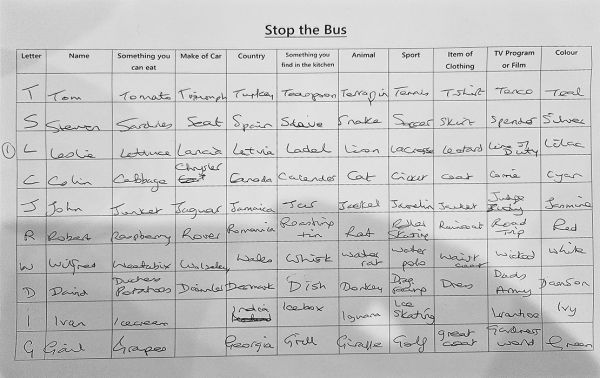 Stop the Bus
Letter Name Something you can eat Make of Car Country Something you find in the kitchen Animal Sport Item of Clothing TV Program or Film Colour
T Tom Tomato Triumph Turkey Teaspoon Terrapin Tennis T-Shirt Teal
S Steven Sardines Seat Spain Snake Soccer Skirt Spender Silver
① L Leslie Lettuce Lancia Latvia Ladel Lion Lacrosse Leotard Line of Duty Lilac
C Colin Cabbage Chrysler Canada Calender Cat Cricket coat Carrie Cyan
J John Junket Jaguar Jamaica Jar Jackal Javelin Jacket Judge Judy Jasmine
R Robert Raspberry Rover Romania Roasting tin Rat Roller Skating Raincoat Road Trip Red
W Wilfred Weetabix Wolseley Wales Whisk water rat water polo waist coat Wicked white
D David Duchess Potatoes Daimler Denmark Dish Donkey Dress Dads Army Damson
I Ivan Icecream India Icebox Iguana Ice Skating Ivy
G Gail Grapes Georgia Grill Giraffe Golf great coat Gardners world Green